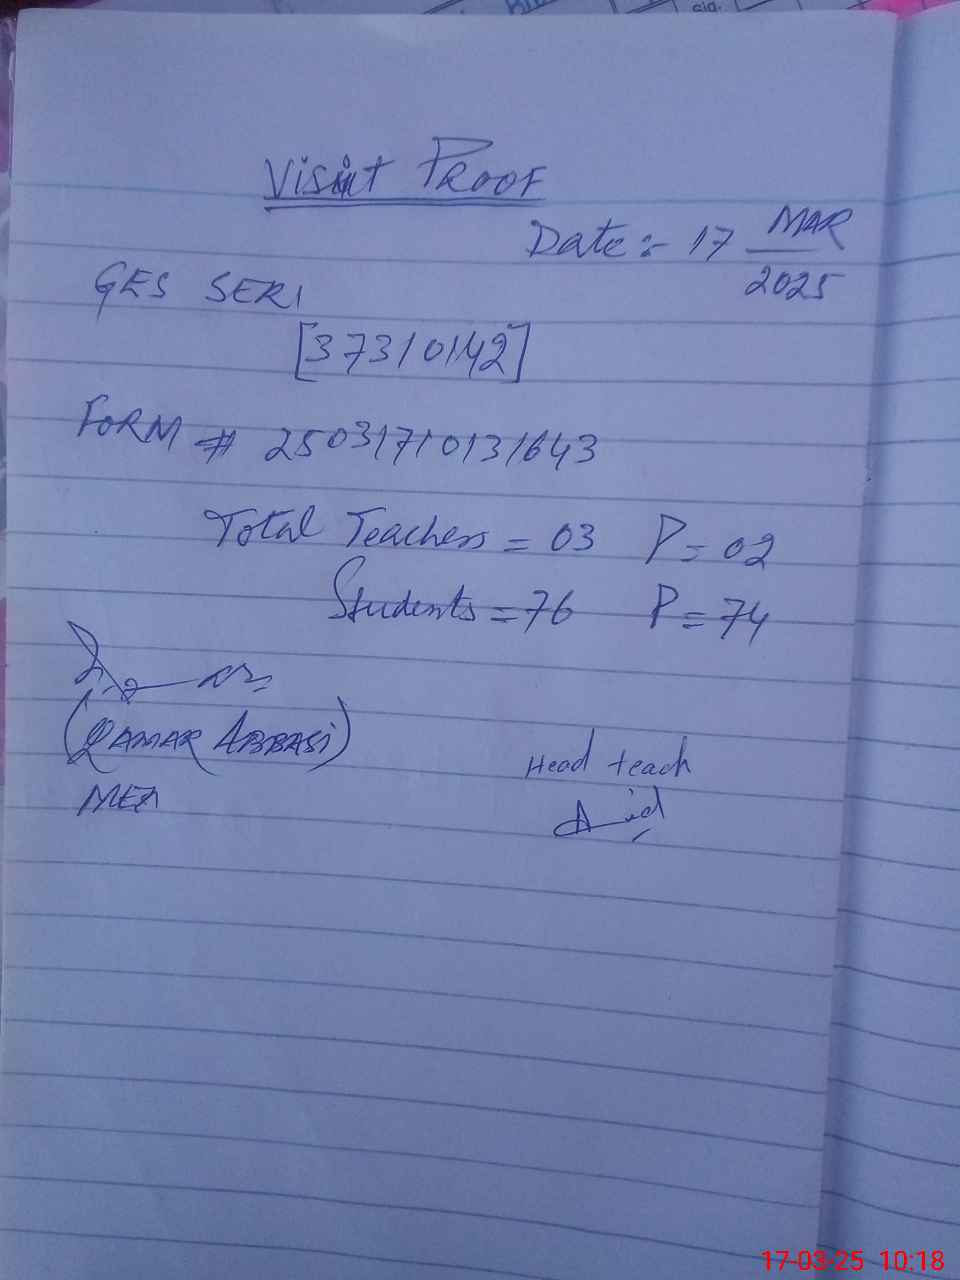 Visit PROOF
Date:- 17 MAR
2025
GES SERI
[37310142]
FORM # 25031710131643
Total Teachers = 03 P = 02
Students = 76 P = 74
(QAMAR ABBASI)
MEA
Head teach
17-03-25 10:18